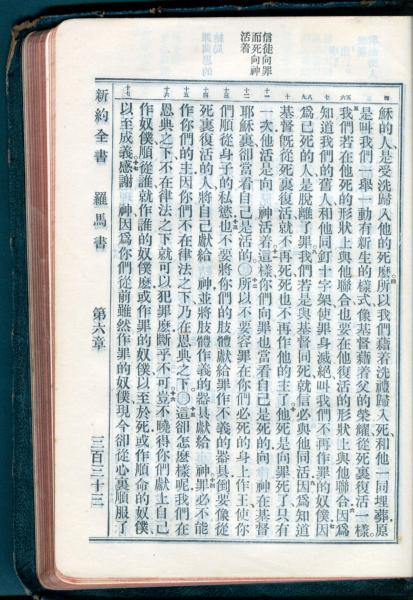 信徒向罪
而死向神
活着
穌的人是受洗歸入他的死麽所以我們藉着洗禮歸入死和他一同埋葬原
是叫我們一舉一動有新生的樣式像基督藉着父的榮耀從死裏復活一樣
我們若在他死的形狀上與他聯合也要在他復活的形狀上與他聯合因爲
知道我們的舊人和他同釘十字架使罪身滅絕叫我們不再作罪的奴僕因
爲已死的人是脫離了罪我們若是與基督同死就信必與他同活因爲知道
基督旣從死裏復活就不再死死也不再作他的主了他死是向罪死了只有
一次他活是向 神活着這樣你們向罪也當看自己是死的向 神在基督
耶穌裏卻當看自己是活的〇所以不要容罪在你們必死的身上作王使你
們順從身子的私慾也不要將你們的肢體獻給罪作不義的器具倒要像從
死裏復活的人將自己獻給 神並將肢體作義的器具獻給 神罪必不能
作你們的主因你們不在律法之下乃在恩典之下〇這卻怎麽樣呢我們在
恩典之下不在律法之下就可以犯罪麽斷乎不可豈不曉得你們獻上自己
作奴僕順從誰就作誰的奴僕麽或作罪的奴僕以至於死或作順命的奴僕
以至成義感謝 神因爲你們從前雖然作罪的奴僕現今卻從心裏順服了
新約全書 羅馬書 第六章 三百三十三